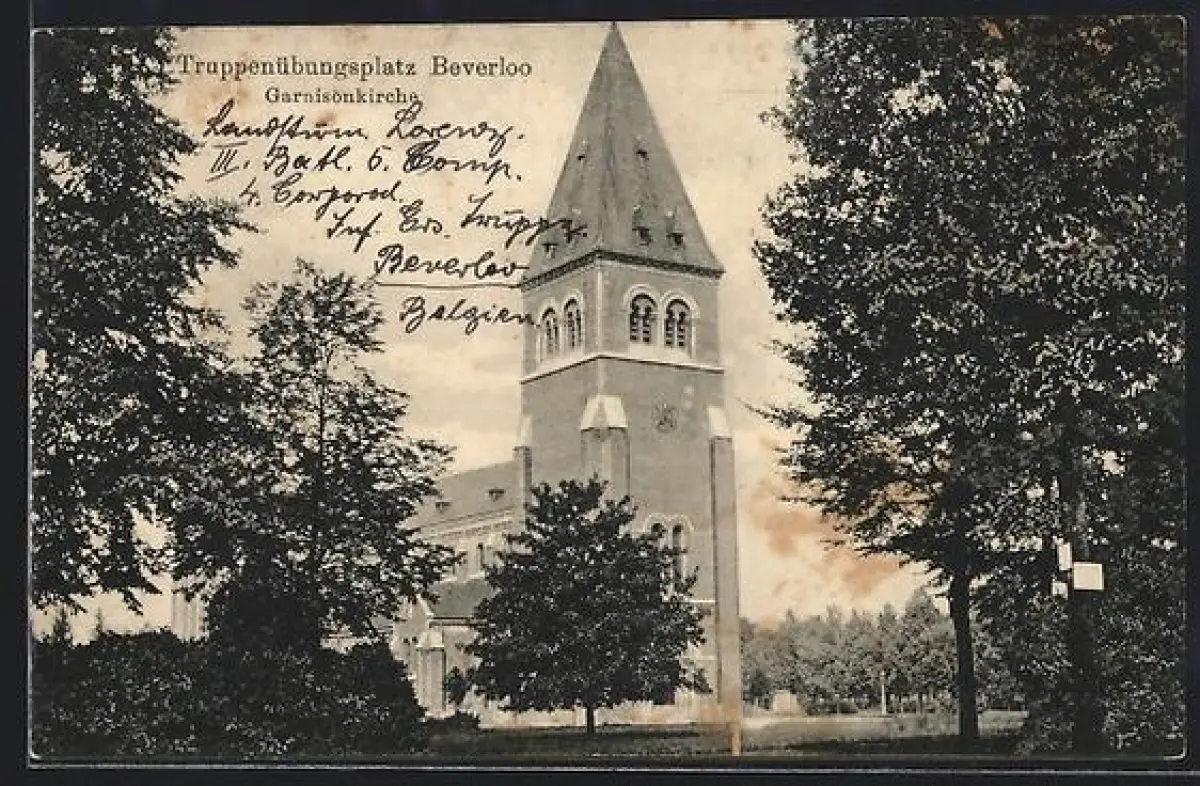 Truppenübungsplatz Beverloo
Garnisonkirche
Landsturm Lorenz.
III. Batl. 5. Comp.
4. Corporal.
Inf. Ers. Trupp
Beverloo
Belgien